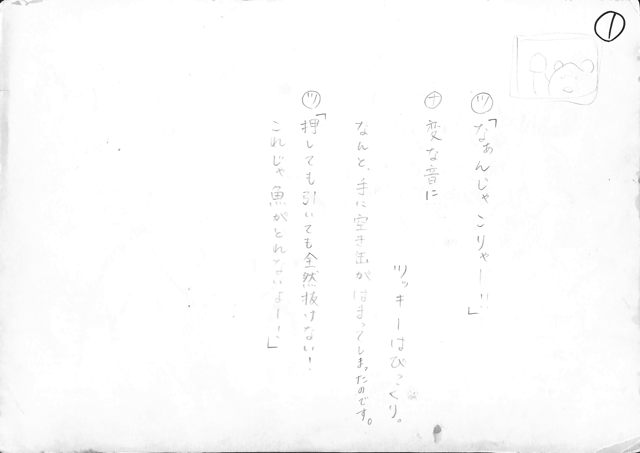 ①
ツ「なぁんじゃこりゃー!!」
ナ 変な音に
ツッキーはびっくり。
なんと、手に空き缶がはまってしまったのです。
ツ「押しても引いても全然抜けない!
これじゃ魚がとれないよー!」